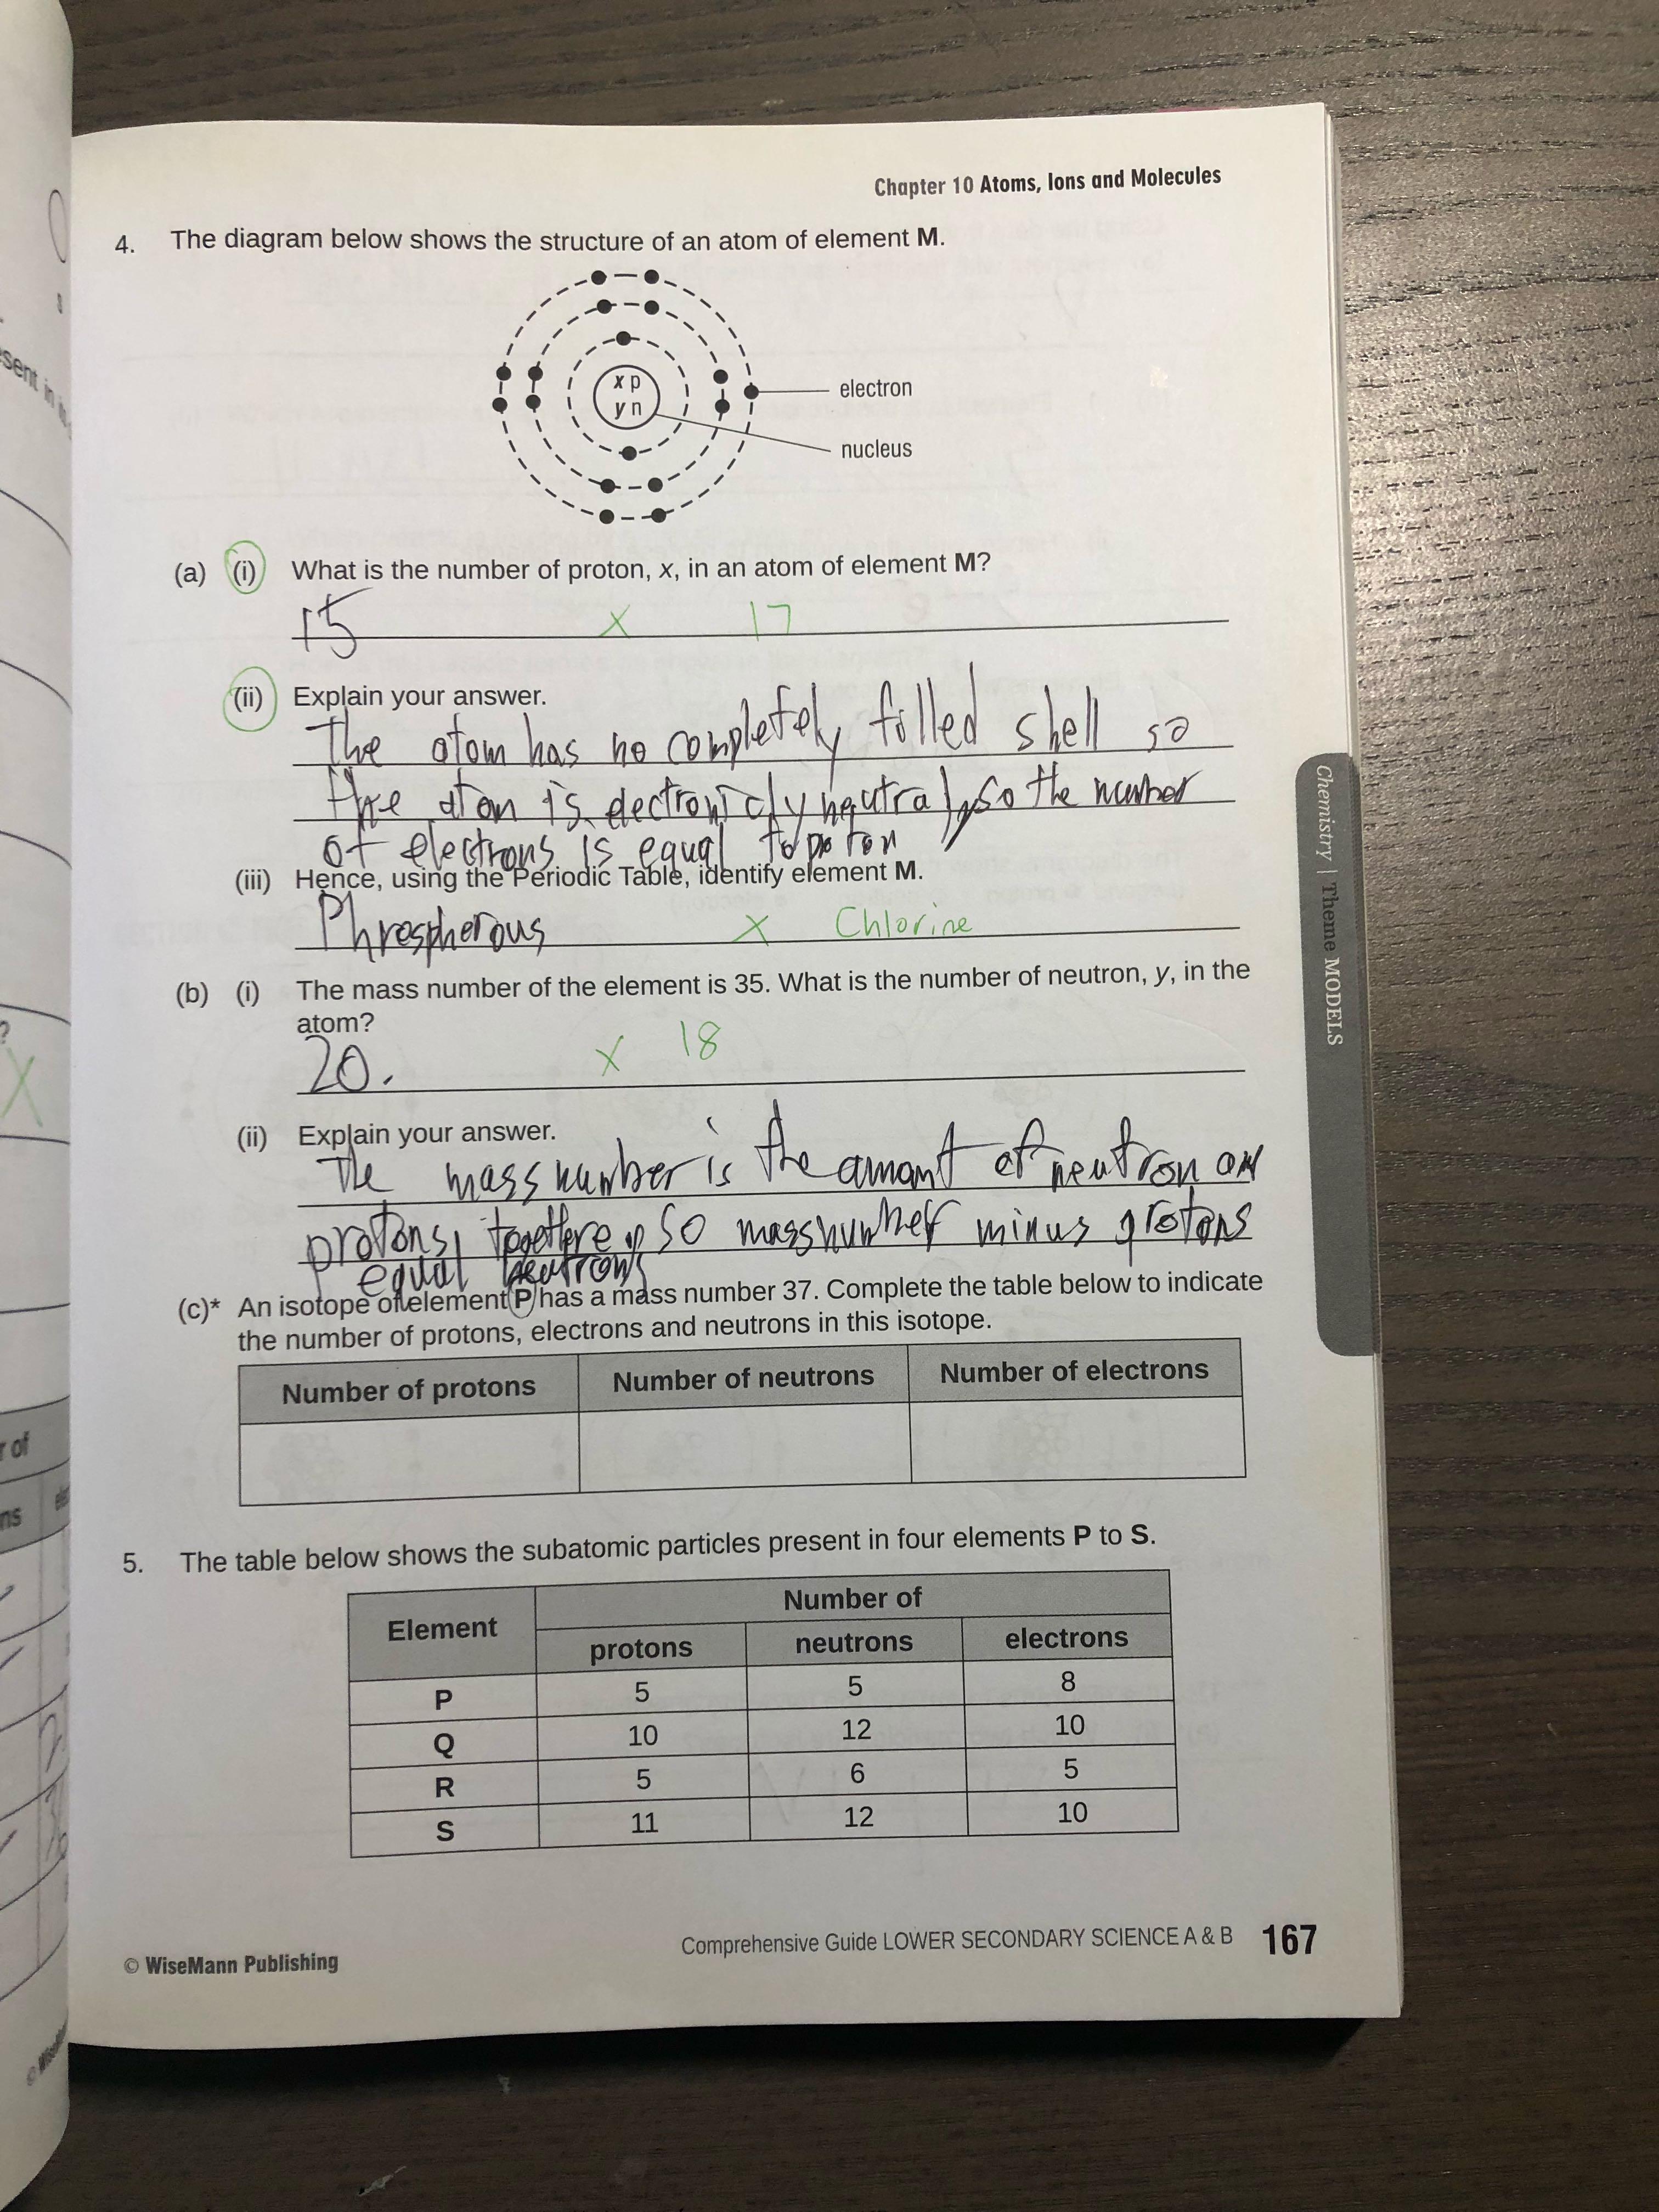 Chapter 10 Atoms, Ions and Molecules
4. The diagram below shows the structure of an atom of element M.
x p
y n
electron
nucleus
(a) (i) What is the number of proton, x, in an atom of element M?
15 x 17
(ii) Explain your answer.
The atom has no completely filled shell so
the atom is electronicly neutral, so the number
of electrons is equal to proton
(iii) Hence, using the Periodic Table, identify element M.
Phrospherous x Chlorine
(b) (i) The mass number of the element is 35. What is the number of neutron, y, in the
atom?
20. x 18
(ii) Explain your answer.
The mass number is the amont of neutron and
protons, so mass number minus protons
equal neutrons
(c)* An isotope of element P has a mass number 37. Complete the table below to indicate
the number of protons, electrons and neutrons in this isotope.
Number of protons Number of neutrons Number of electrons
5. The table below shows the subatomic particles present in four elements P to S.
Element Number of
protons neutrons electrons
P 5 5 8
Q 10 12 10
R 5 6 5
S 11 12 10
© WiseMann Publishing
Comprehensive Guide LOWER SECONDARY SCIENCE A & B 167
Chemistry | Theme MODELS
sent in
?
X
r of
ns